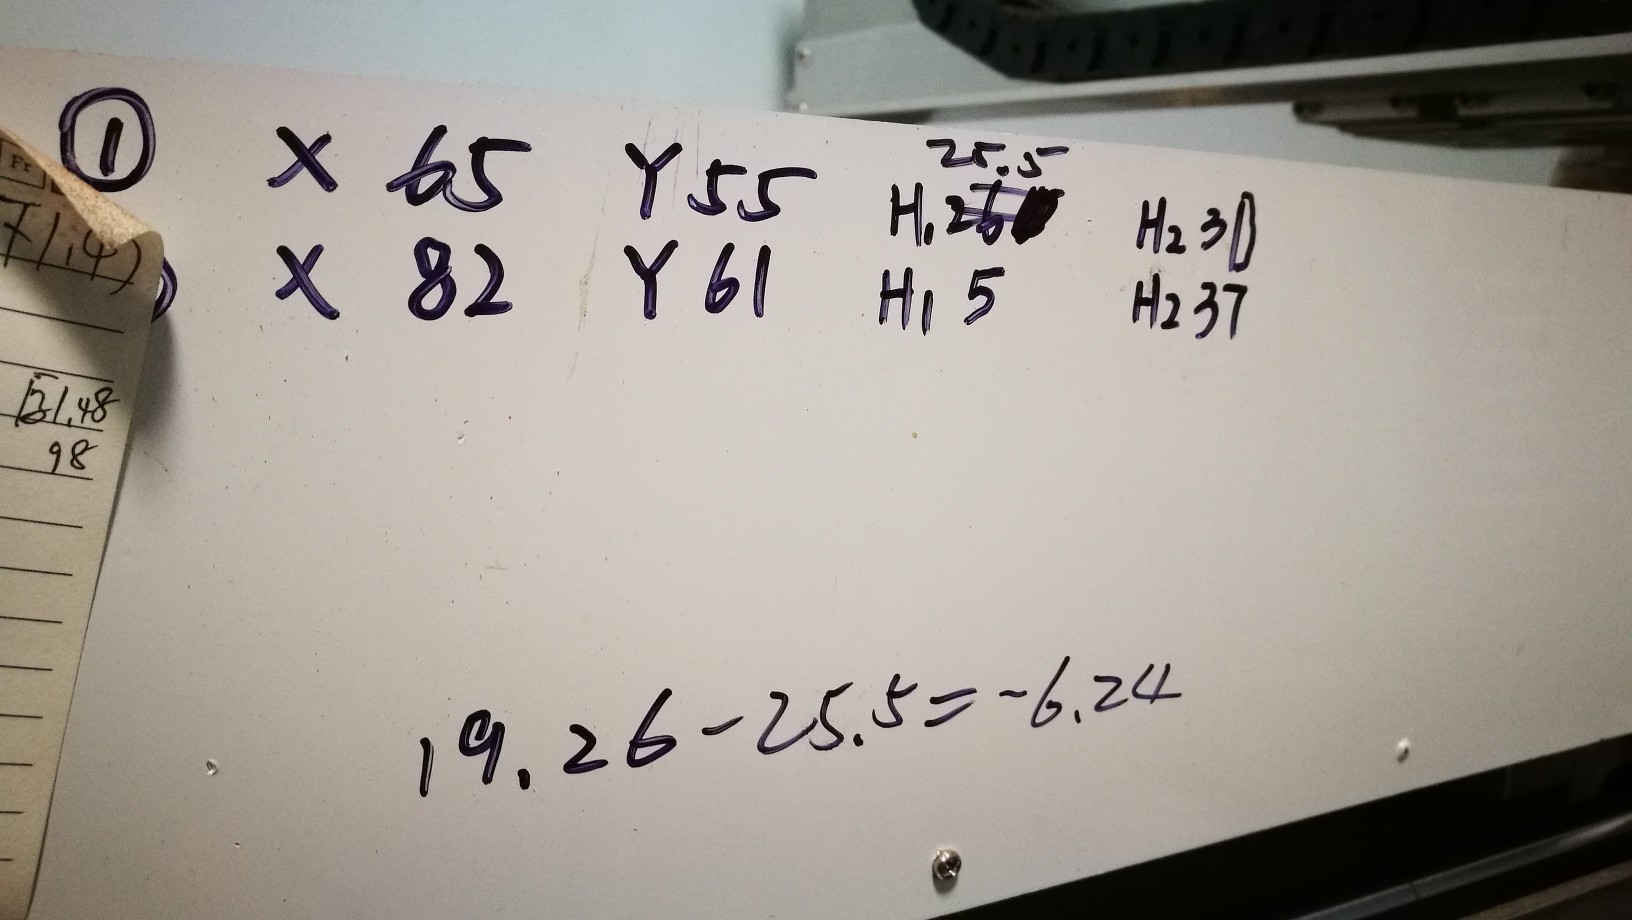 ① X 65 Y 55 H1 25.5 H2 30
X 82 Y 61 H1 5 H2 37
19.26-25.5=-6.24
Fr
71.4)
98